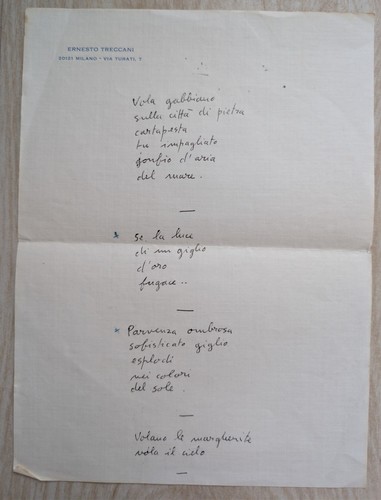 ERNESTO TRECCANI
20121 MILANO - VIA TURATI, 7
Vola gabbiano
sulla città di pietra
cartapesta
tu impagliato
gonfio d'aria
del mare.
—
* Se la luce
di un giglio
d'oro
fugace..
—
* Parvenza ombrosa
sofisticato giglio
esplodi
nei colori
del sole.
—
Volano le margherite
vola il cielo
—